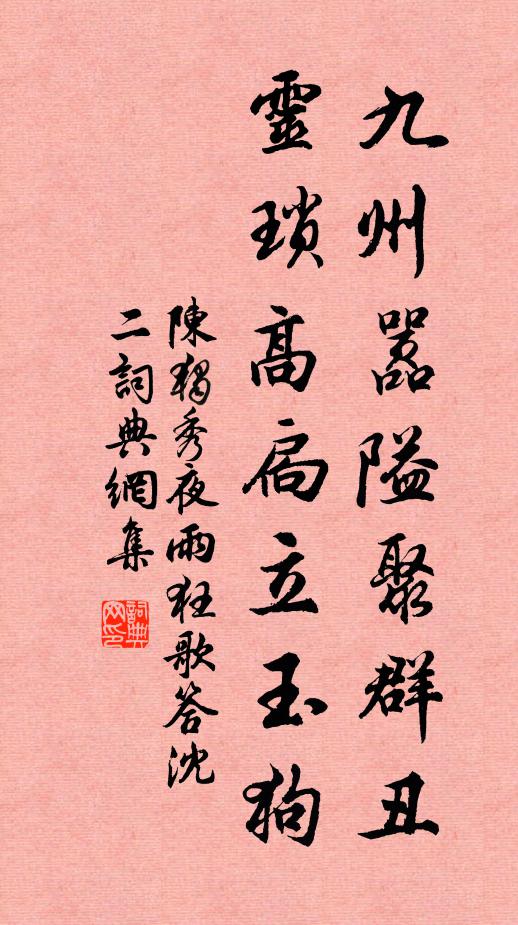 九州嚣隘聚群丑
靈瑣高扃立玉狗
陳獨秀夜雨狂歌答沈
二詞典網集
詞典網印